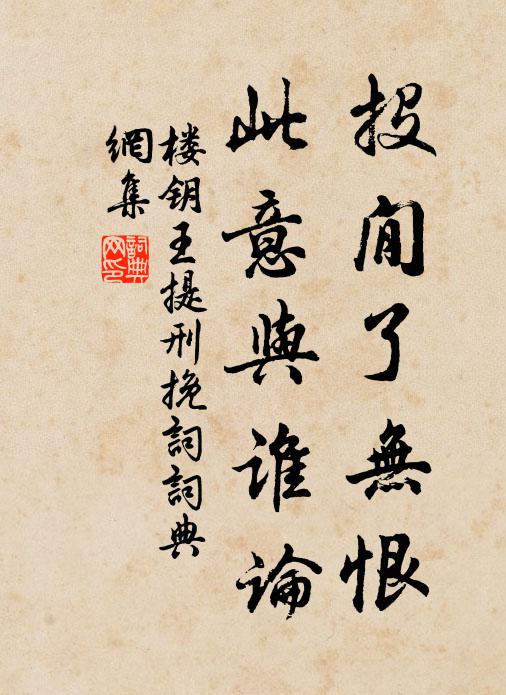 投閒了無恨
此意與誰論
楼钥王提刑挽詞詞典
網集
詞典
网印